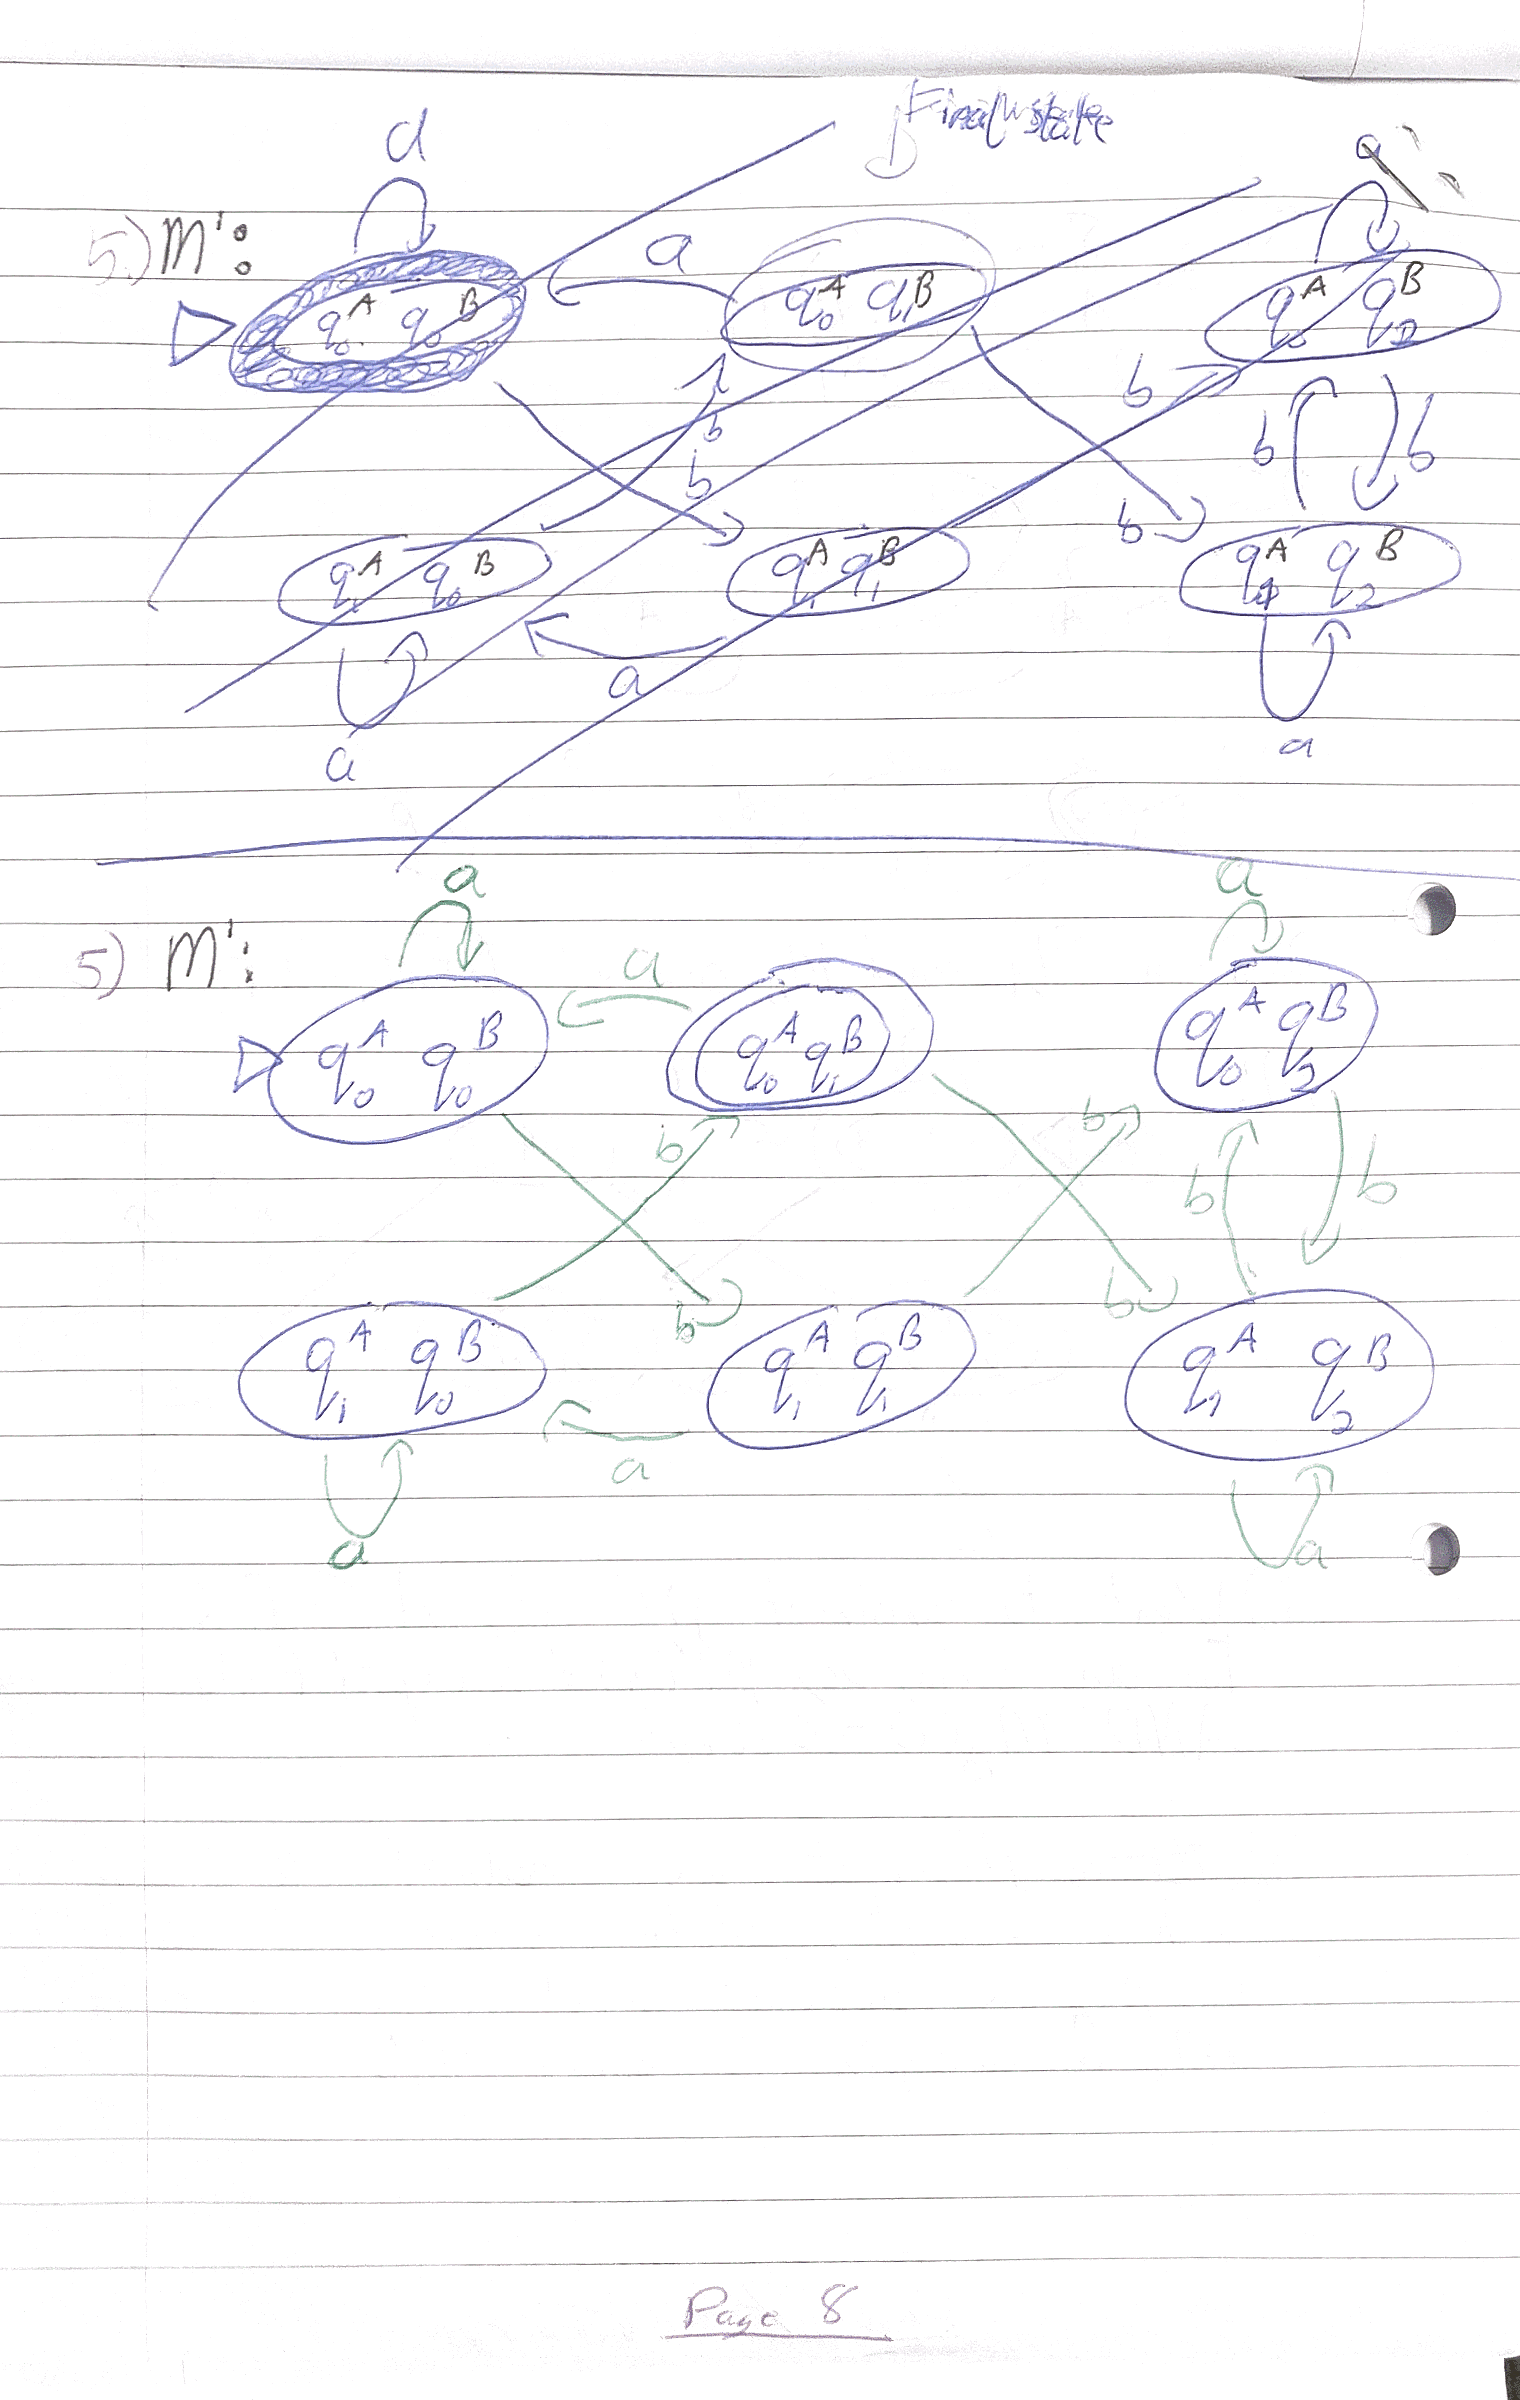 Final state
a
a
5) M':
a
q₀ᴬ q₀ᴮ
q₀ᴬ q₁ᴮ
q₀ᴬ q₂ᴮ
b
b
b
b
b
b
q₁ᴬ q₀ᴮ
q₁ᴬ q₁ᴮ
q₁ᴬ q₂ᴮ
a
a
a
a
a
5) M':
a
q₀ᴬ q₀ᴮ
q₀ᴬ q₁ᴮ
q₀ᴬ q₂ᴮ
b
b
b
b
b
b
q₁ᴬ q₀ᴮ
q₁ᴬ q₁ᴮ
q₁ᴬ q₂ᴮ
a
a
a
Page 8